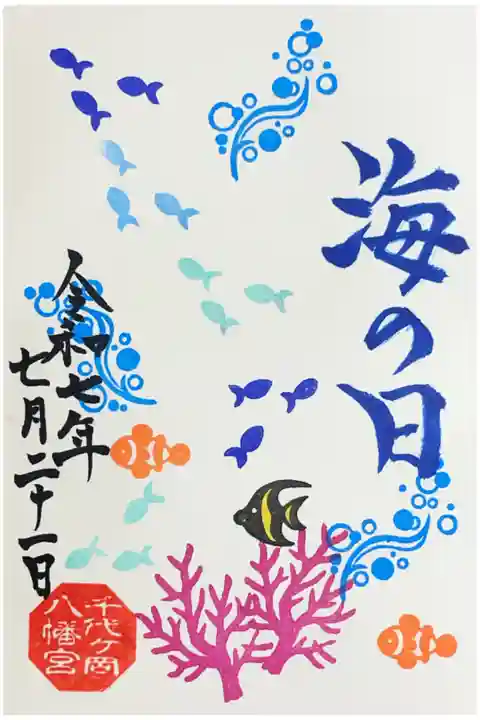 海の日
令和七年
七月二十一日
千代ヶ岡
八幡宮